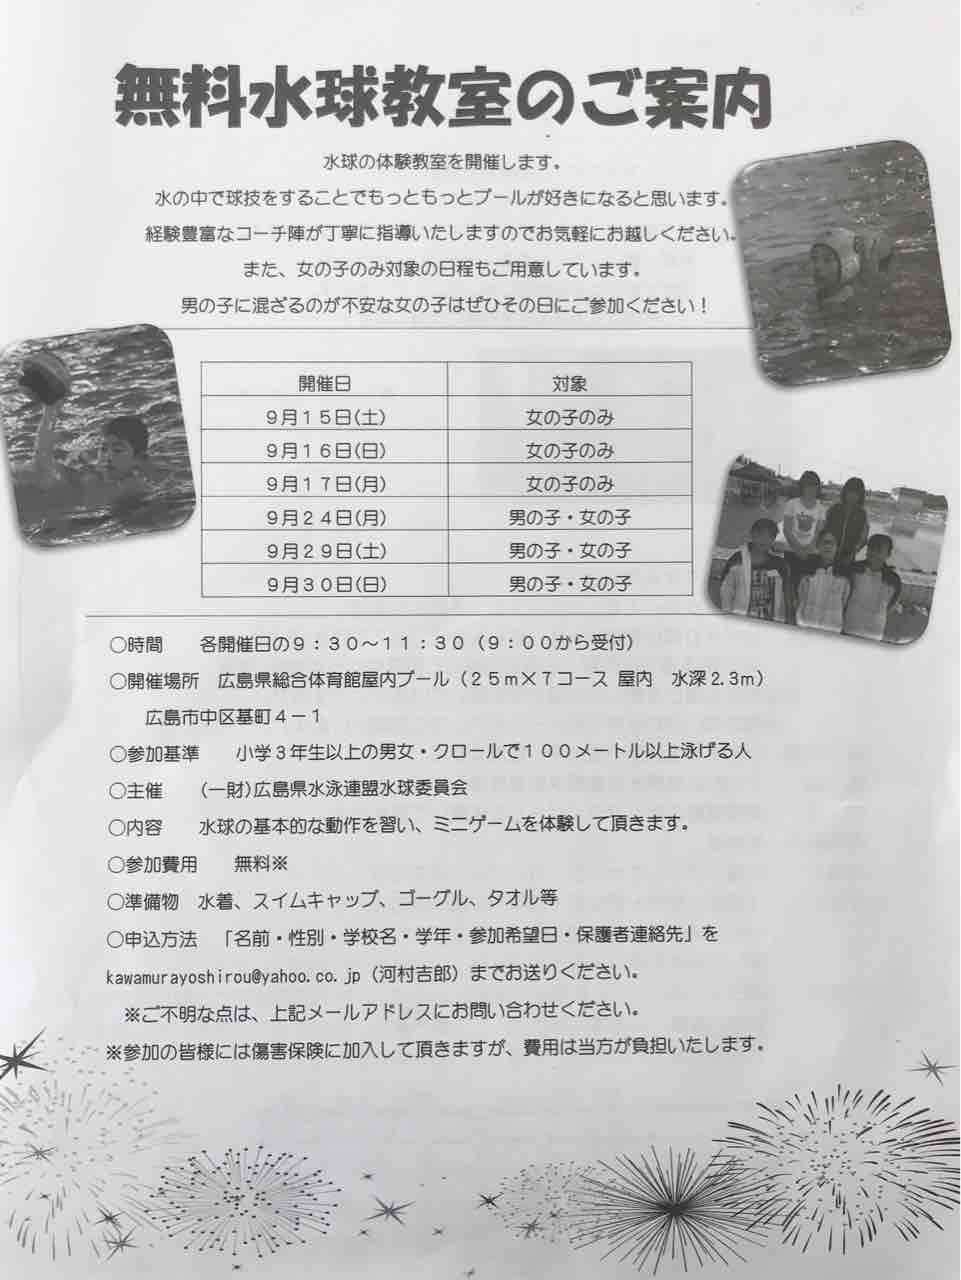 無料水球教室のご案内
水球の体験教室を開催します。
水の中で球技をすることでもっともっとプールが好きになると思います。
経験豊富なコーチ陣が丁寧に指導いたしますのでお気軽にお越しください。
また、女の子のみ対象の日程もご用意しています。
男の子に混ざるのが不安な女の子はぜひその日にご参加ください！
開催日 対象
９月１５日(土) 女の子のみ
９月１６日(日) 女の子のみ
９月１７日(月) 女の子のみ
９月２４日(月) 男の子・女の子
９月２９日(土) 男の子・女の子
９月３０日(日) 男の子・女の子
○時間　各開催日の９：３０～１１：３０（９：００から受付）
○開催場所　広島県総合体育館屋内プール（２５ｍ×７コース 屋内　水深2.3ｍ）
広島市中区基町４－１
○参加基準　小学３年生以上の男女・クロールで１００メートル以上泳げる人
○主催　（一財）広島県水泳連盟水球委員会
○内容　水球の基本的な動作を習い、ミニゲームを体験して頂きます。
○参加費用　無料※
○準備物　水着、スイムキャップ、ゴーグル、タオル等
○申込方法　「名前・性別・学校名・学年・参加希望日・保護者連絡先」を
kawamurayoshirou@yahoo.co.jp（河村吉郎）までお送りください。
※ご不明な点は、上記メールアドレスにお問い合わせください。
※参加の皆様には傷害保険に加入して頂きますが、費用は当方が負担いたします。